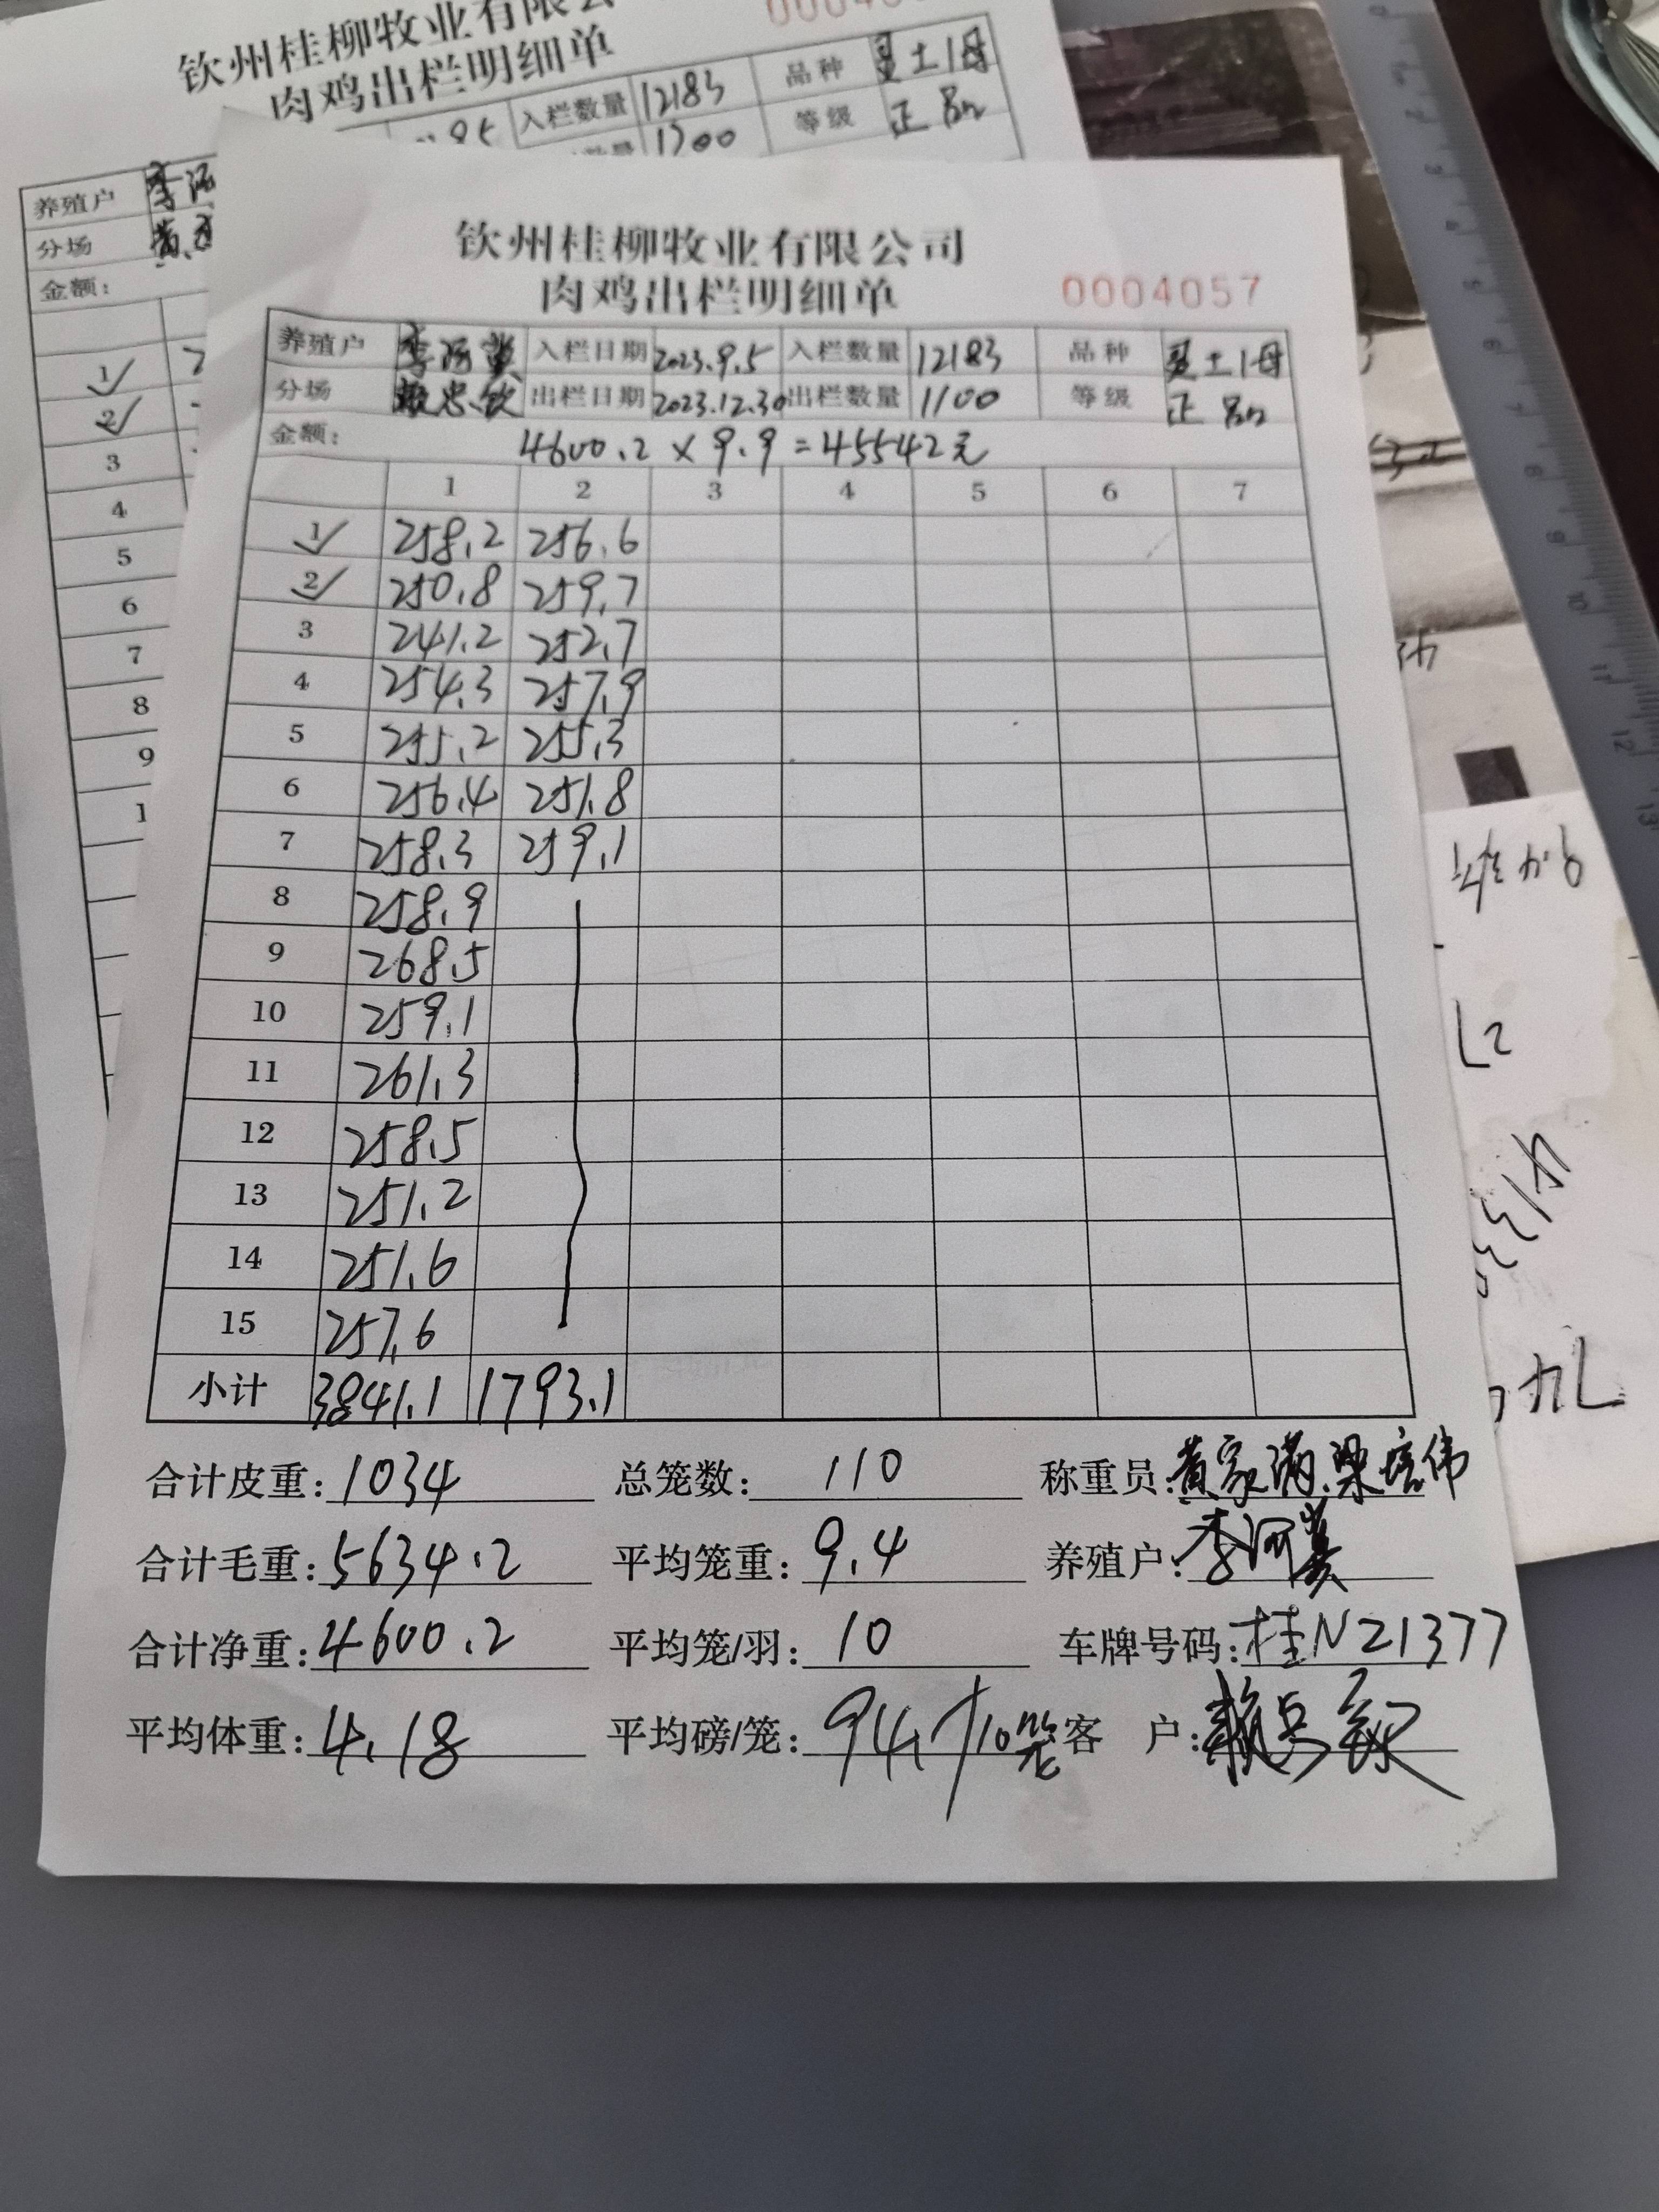 钦州桂柳牧业有限公
肉鸡出栏明细单
入栏数量 12183 品种 土1母
数量 1300 等级 正品
养殖户 李河
分场
金额:
1
2
3
4
5
6
7
8
9
1
钦州桂柳牧业有限公司
肉鸡出栏明细单 0004057
养殖户 李河 入栏日期 2023.9.5 入栏数量 12183 品种 土1母
分场 赖忠钦 出栏日期 2023.12.30 出栏数量 1100 等级 正品
金额: 4600.2 × 9.9 = 45542元
1 2 3 4 5 6 7
1 258.2 256.6
2 250.8 259.7
3 241.2 252.7
4 254.3 257.9
5 255.2 255.3
6 256.4 251.8
7 258.3 259.1
8 258.9
9 268.5
10 259.1
11 261.3
12 258.5
13 251.2
14 251.6
15 257.6
小计 3841.1 1793.1
合计皮重: 1034 总笼数: 110 称重员: 黄家满 梁培伟
合计毛重: 5634.2 平均笼重: 9.4 养殖户: 李河
合计净重: 4600.2 平均笼/羽: 10 车牌号码: 桂NZ1377
平均体重: 4.18 平均磅/笼: 94斤/10笼 客 户: 赖忠钦